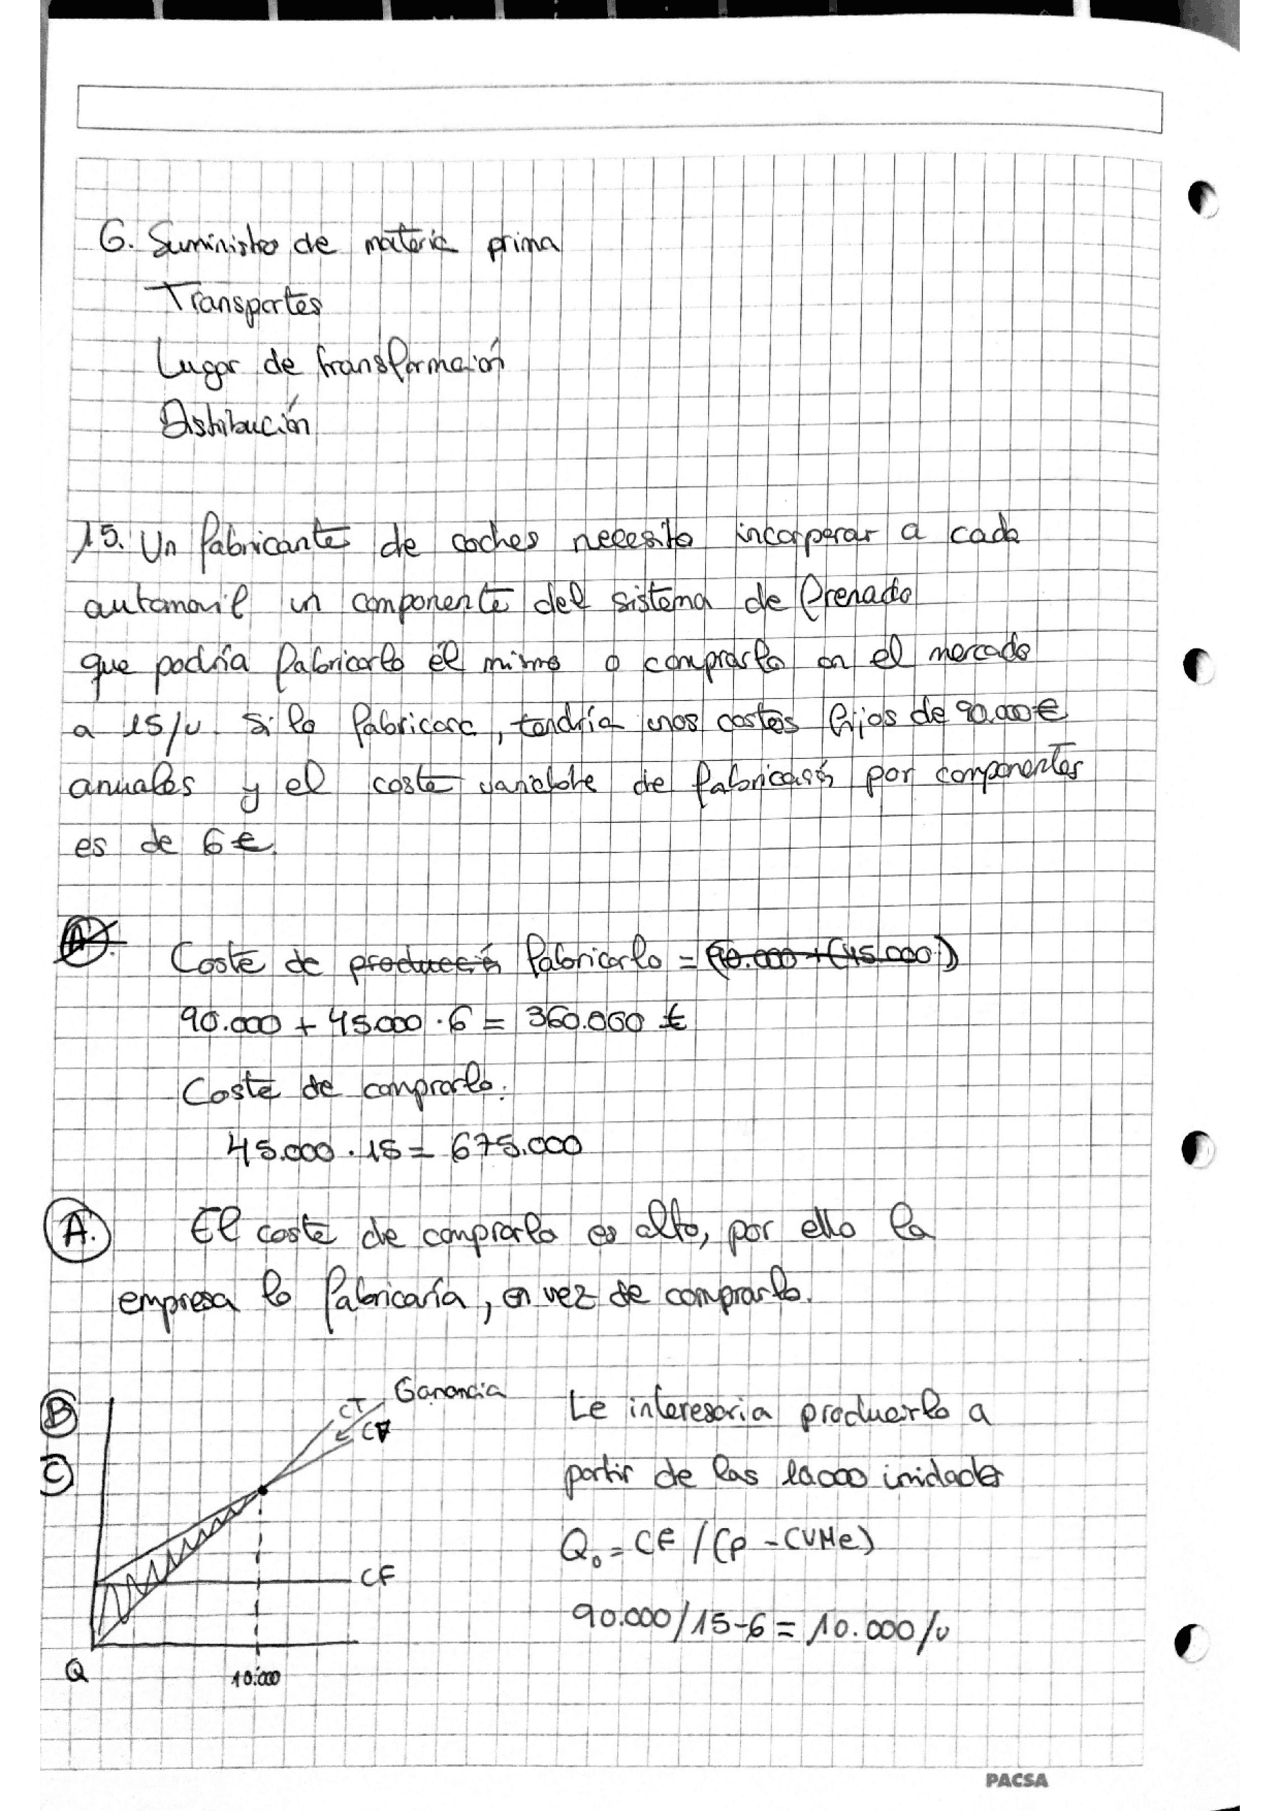 6. Suministro de materia prima
Transportes
Lugar de transformación
Distribución
15. Un fabricante de coches necesita incorporar a cada
automovil un componente del sistema de frenado
que podría fabricarlo él mismo o comprarlo en el mercado
a 15/u. Si lo fabricara, tendría unos costes fijos de 90.000€
anuales y el coste variable de fabricación por componentes
es de 6€.
A.
Coste de producción fabricarlo = (90.000+(45.000·)
90.000 + 45.000 · 6 = 360.000 €
Coste de comprarlo:
45.000 · 15 = 675.000
A. El coste de comprarlo es alto, por ello la
empresa lo fabricaría, en vez de comprarlo.
B
C
Ganancia
CT
CF
10.000
Q
Le interesaria producirlo a
partir de las 10.000 unidades
Q₀ = CF / (P - CVMe)
90.000/15-6 = 10.000/u
PACSA